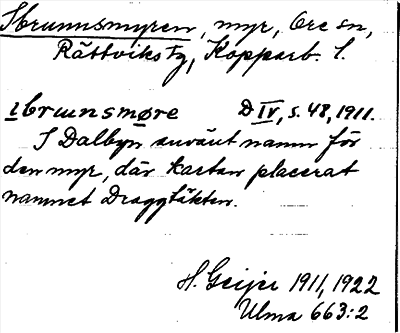 Ibrunnsmyren, myr, Ore sn,
Rättviks tg, Kopparb. l.
ıbrunsmøre D IV, s. 48, 1911.
I Dalbyn använt namn för
den myr, där kartan placerat
namnet Draggtäkten.
H. Geijer 1911, 1922
Ulma 663:2